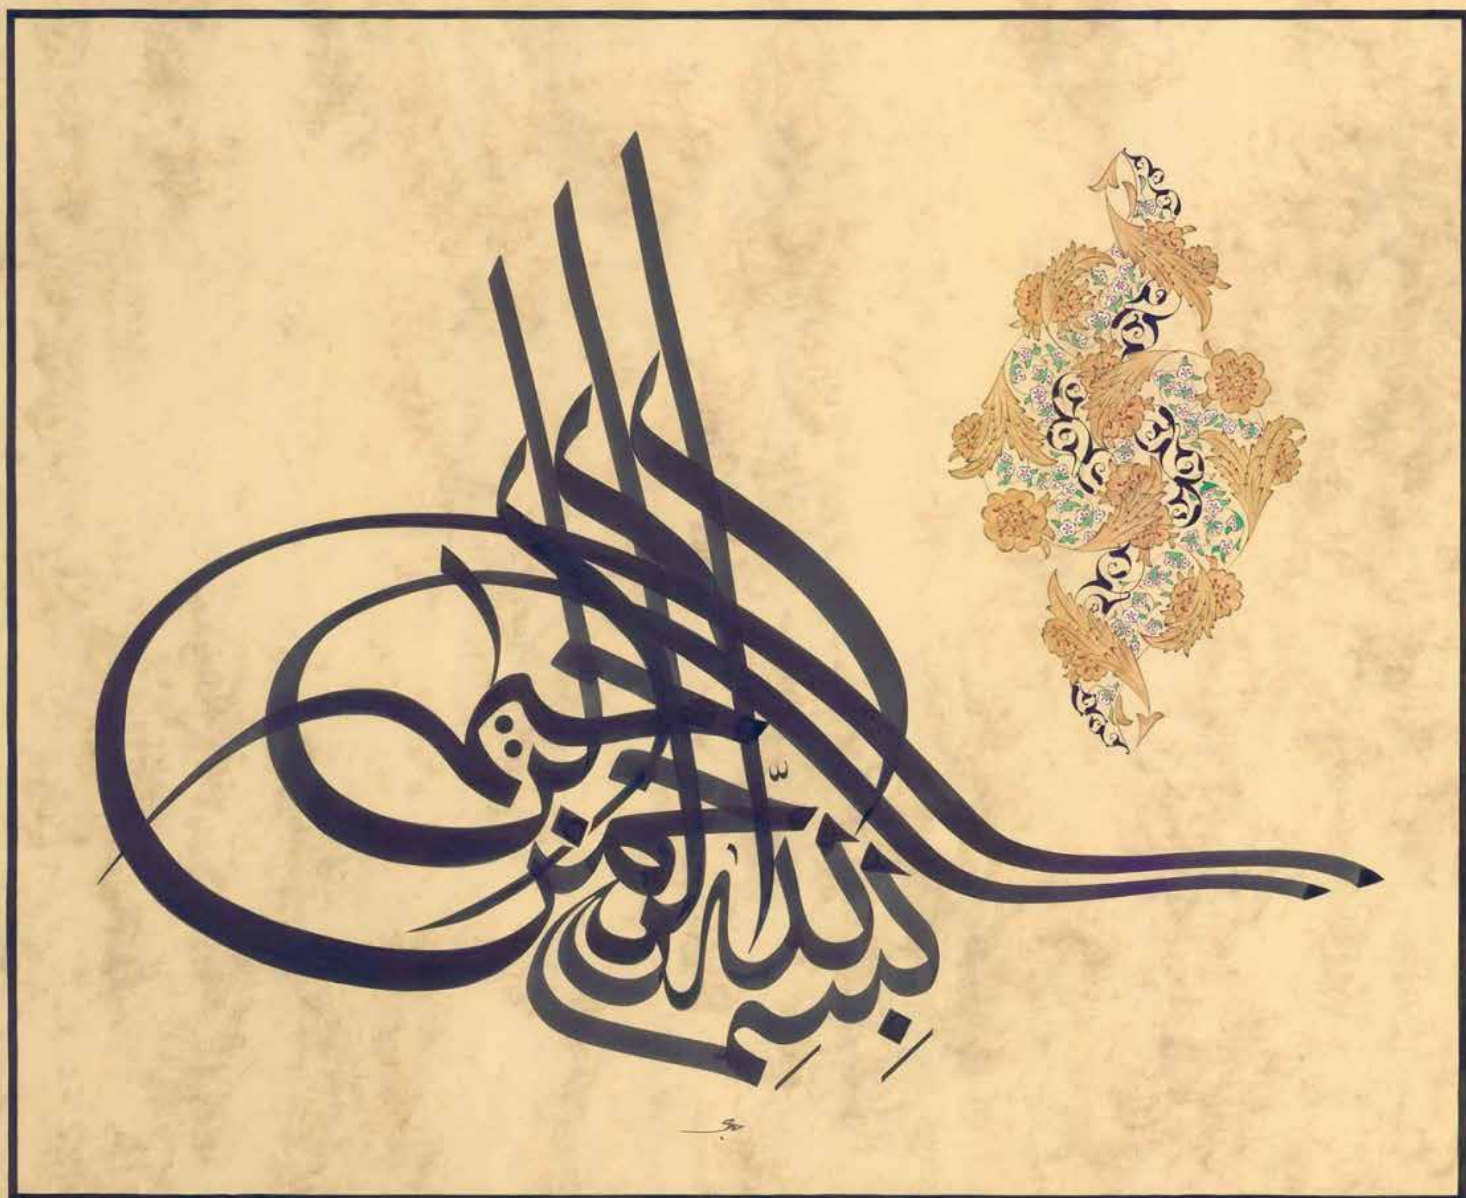 بِسِمِ اللّٰه الرحمن الرحيم